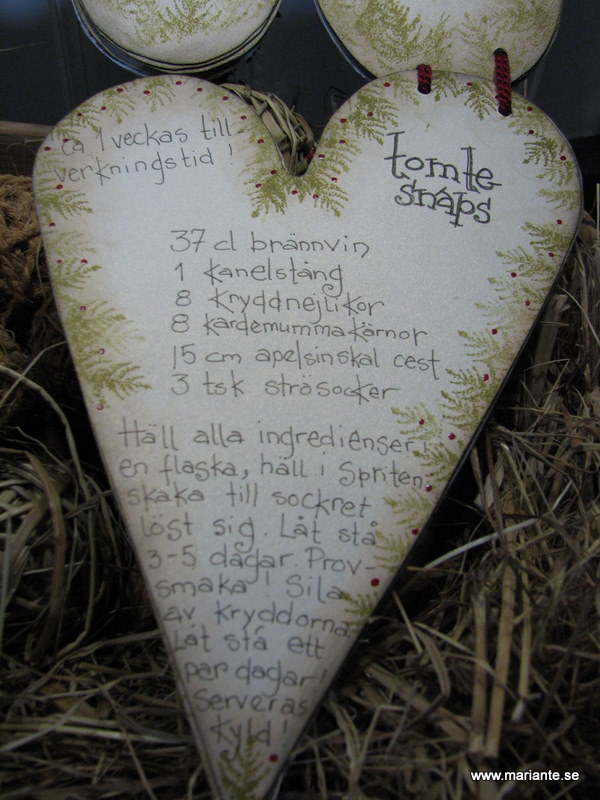 ca 1 veckas till
verkningstid!
tomte
snaps
37 cl brännvin
1 kanelstång
8 kryddnejlikor
8 kardemummakärnor
15 cm apelsinskal cest
3 tsk strösocker
Häll alla ingredienser i
en flaska, häll i spriten,
skaka till sockret
löst sig. Låt stå
3-5 dagar. Prov-
smaka! Sila
av kryddorna.
Låt stå ett
par dagar!
Serveras
kyld!
www.mariante.se